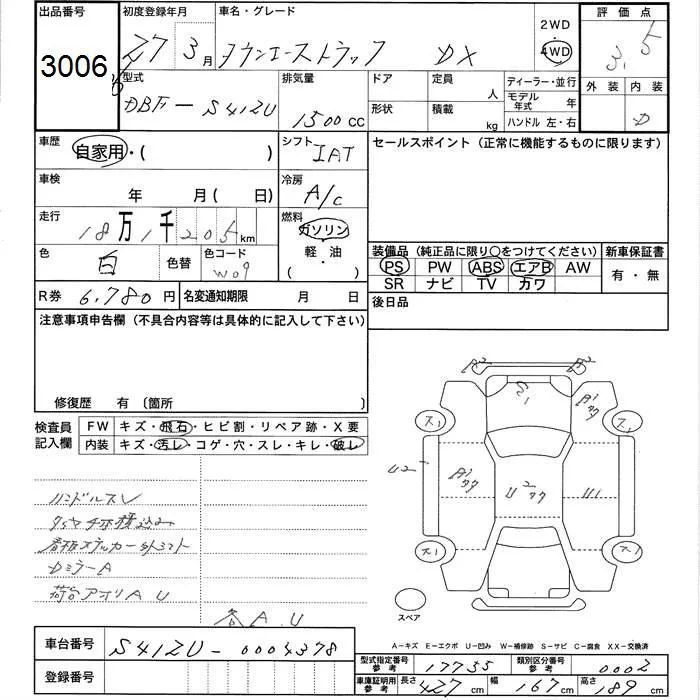 出品番号 初度登録年月 車名・グレード 2WD 評価点
3006 27年3月 タウンエーストラック DX 4WD 3.5
型式 排気量 ドア 定員 人 ディーラー・並行 外装 内装
DBF-S412U 1500CC 形状 積載 kg モデル年式 年 D
ハンドル 左・右
車歴 自家用・( ) シフト IAT セールスポイント(正常に機能するものに限ります)
車検 年 月(日) 冷房 A/C
走行 18万1千205km 燃料 ガソリン
軽・油
・( )
色 白 色替 色コード W09
装備品(純正品に限り〇をつけてください) 新車保証書
PS PW ABS エアB AW 有・無
SR ナビ TV カワ
R券 6,780円 名変通知期限 月 日 後日品
注意事項申告欄(不具合内容等は具体的に記入して下さい)
修復歴 有〔箇所 〕
検査員記入欄 FW キズ・飛石・ヒビ割・リペア跡・X要
内装 キズ・汚レ・コゲ・穴・スレ・キレ・破レ
ハンドルスレ
DミラーA
荷台アオリAU
各A.U
A2 A2
S1
ス1 ス1
U2 U2 U1
ス1 ス1
スペア
A-キズ E-エクボ U-凹み W-補修跡 S-サビ C-腐食 XX-交換済
車台番号 S412U-0004378
登録番号
型式指定番号参考 17755 類別区分番号参考 0002
車庫証明用参考 長さ 427cm 幅 167cm 高さ 189cm